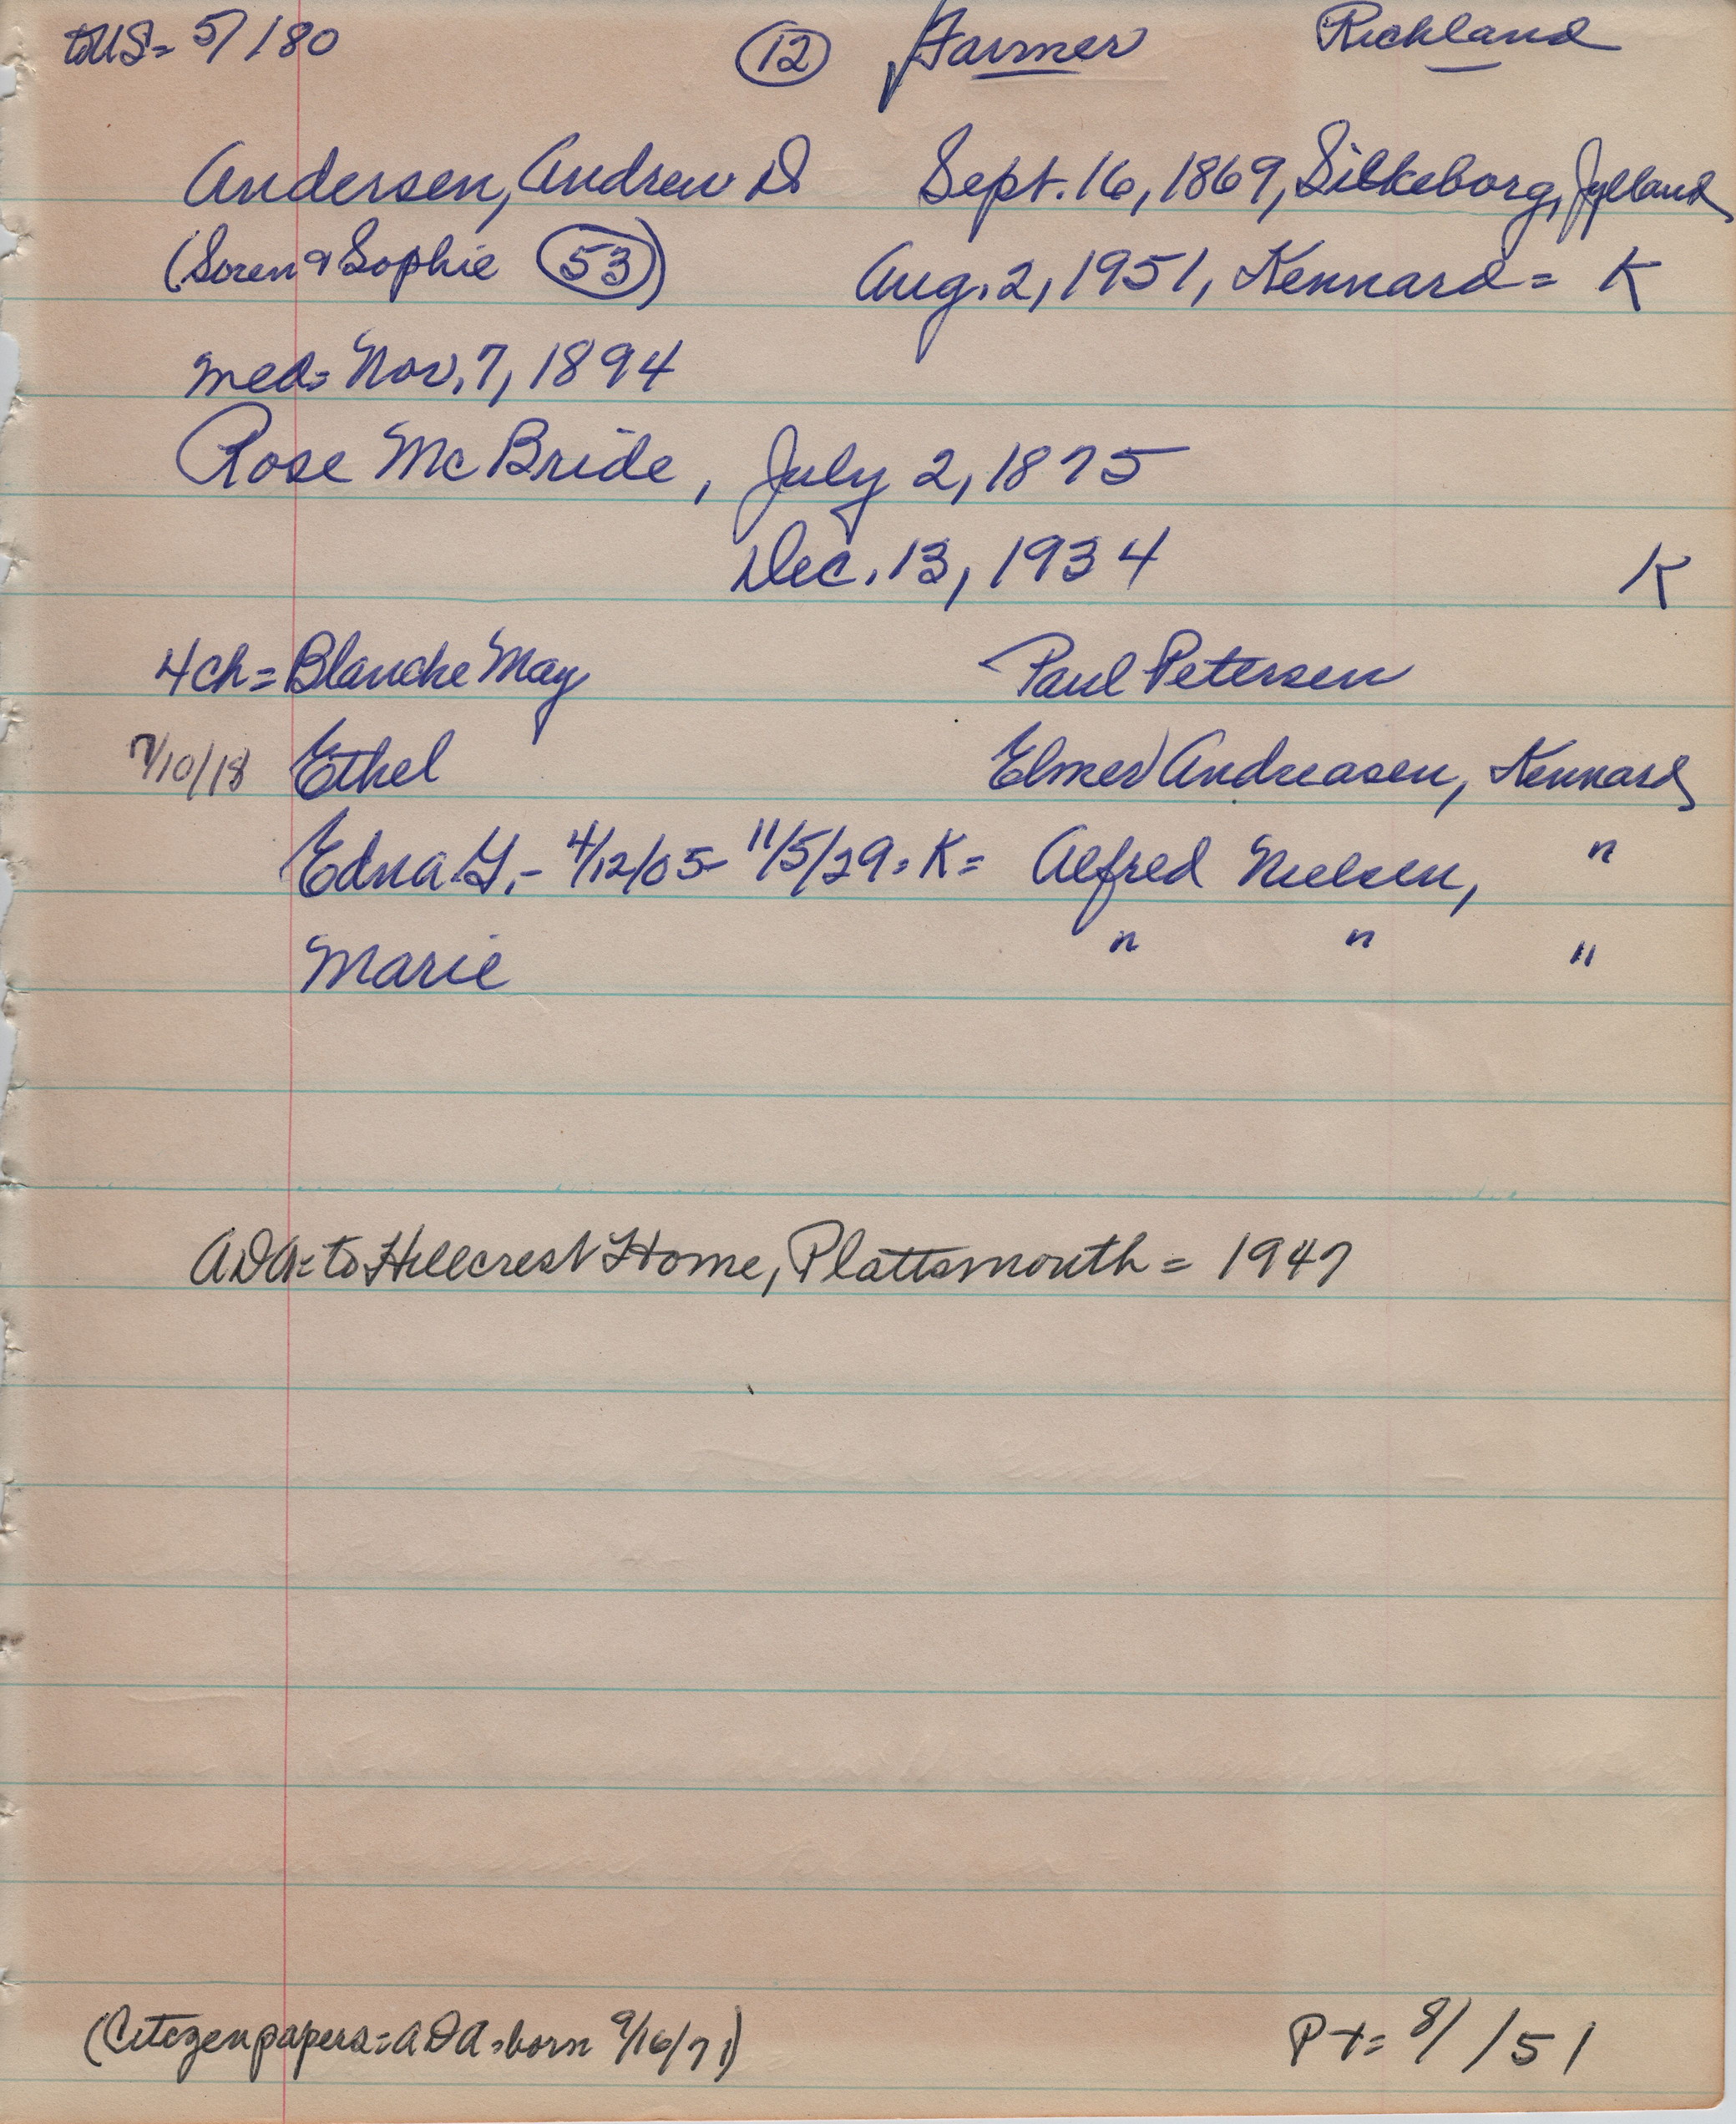 to US= 5/ /80 (12) Farmer Richland
Andersen, Andrew D Sept. 16, 1869, Silkeborg, Jylland
(Soren & Sophie (53)) Aug. 2, 1951, Kennard = K
med= Nov. 7, 1894
Rose McBride, July 2, 1875
Dec. 13, 1934 K
4 ch = Blanche May Paul Petersen
7/10/18 Ethel Elmer Andreasen, Kennard
Edna G. - 4/12/05 - 11/5/29 = K = Alfred Nielsen, "
Marie " " "
ADA = to Hillcrest Home, Plattsmouth = 1947
(Citizen papers = ADA = born 9/16/71) Pt = 8/ /51